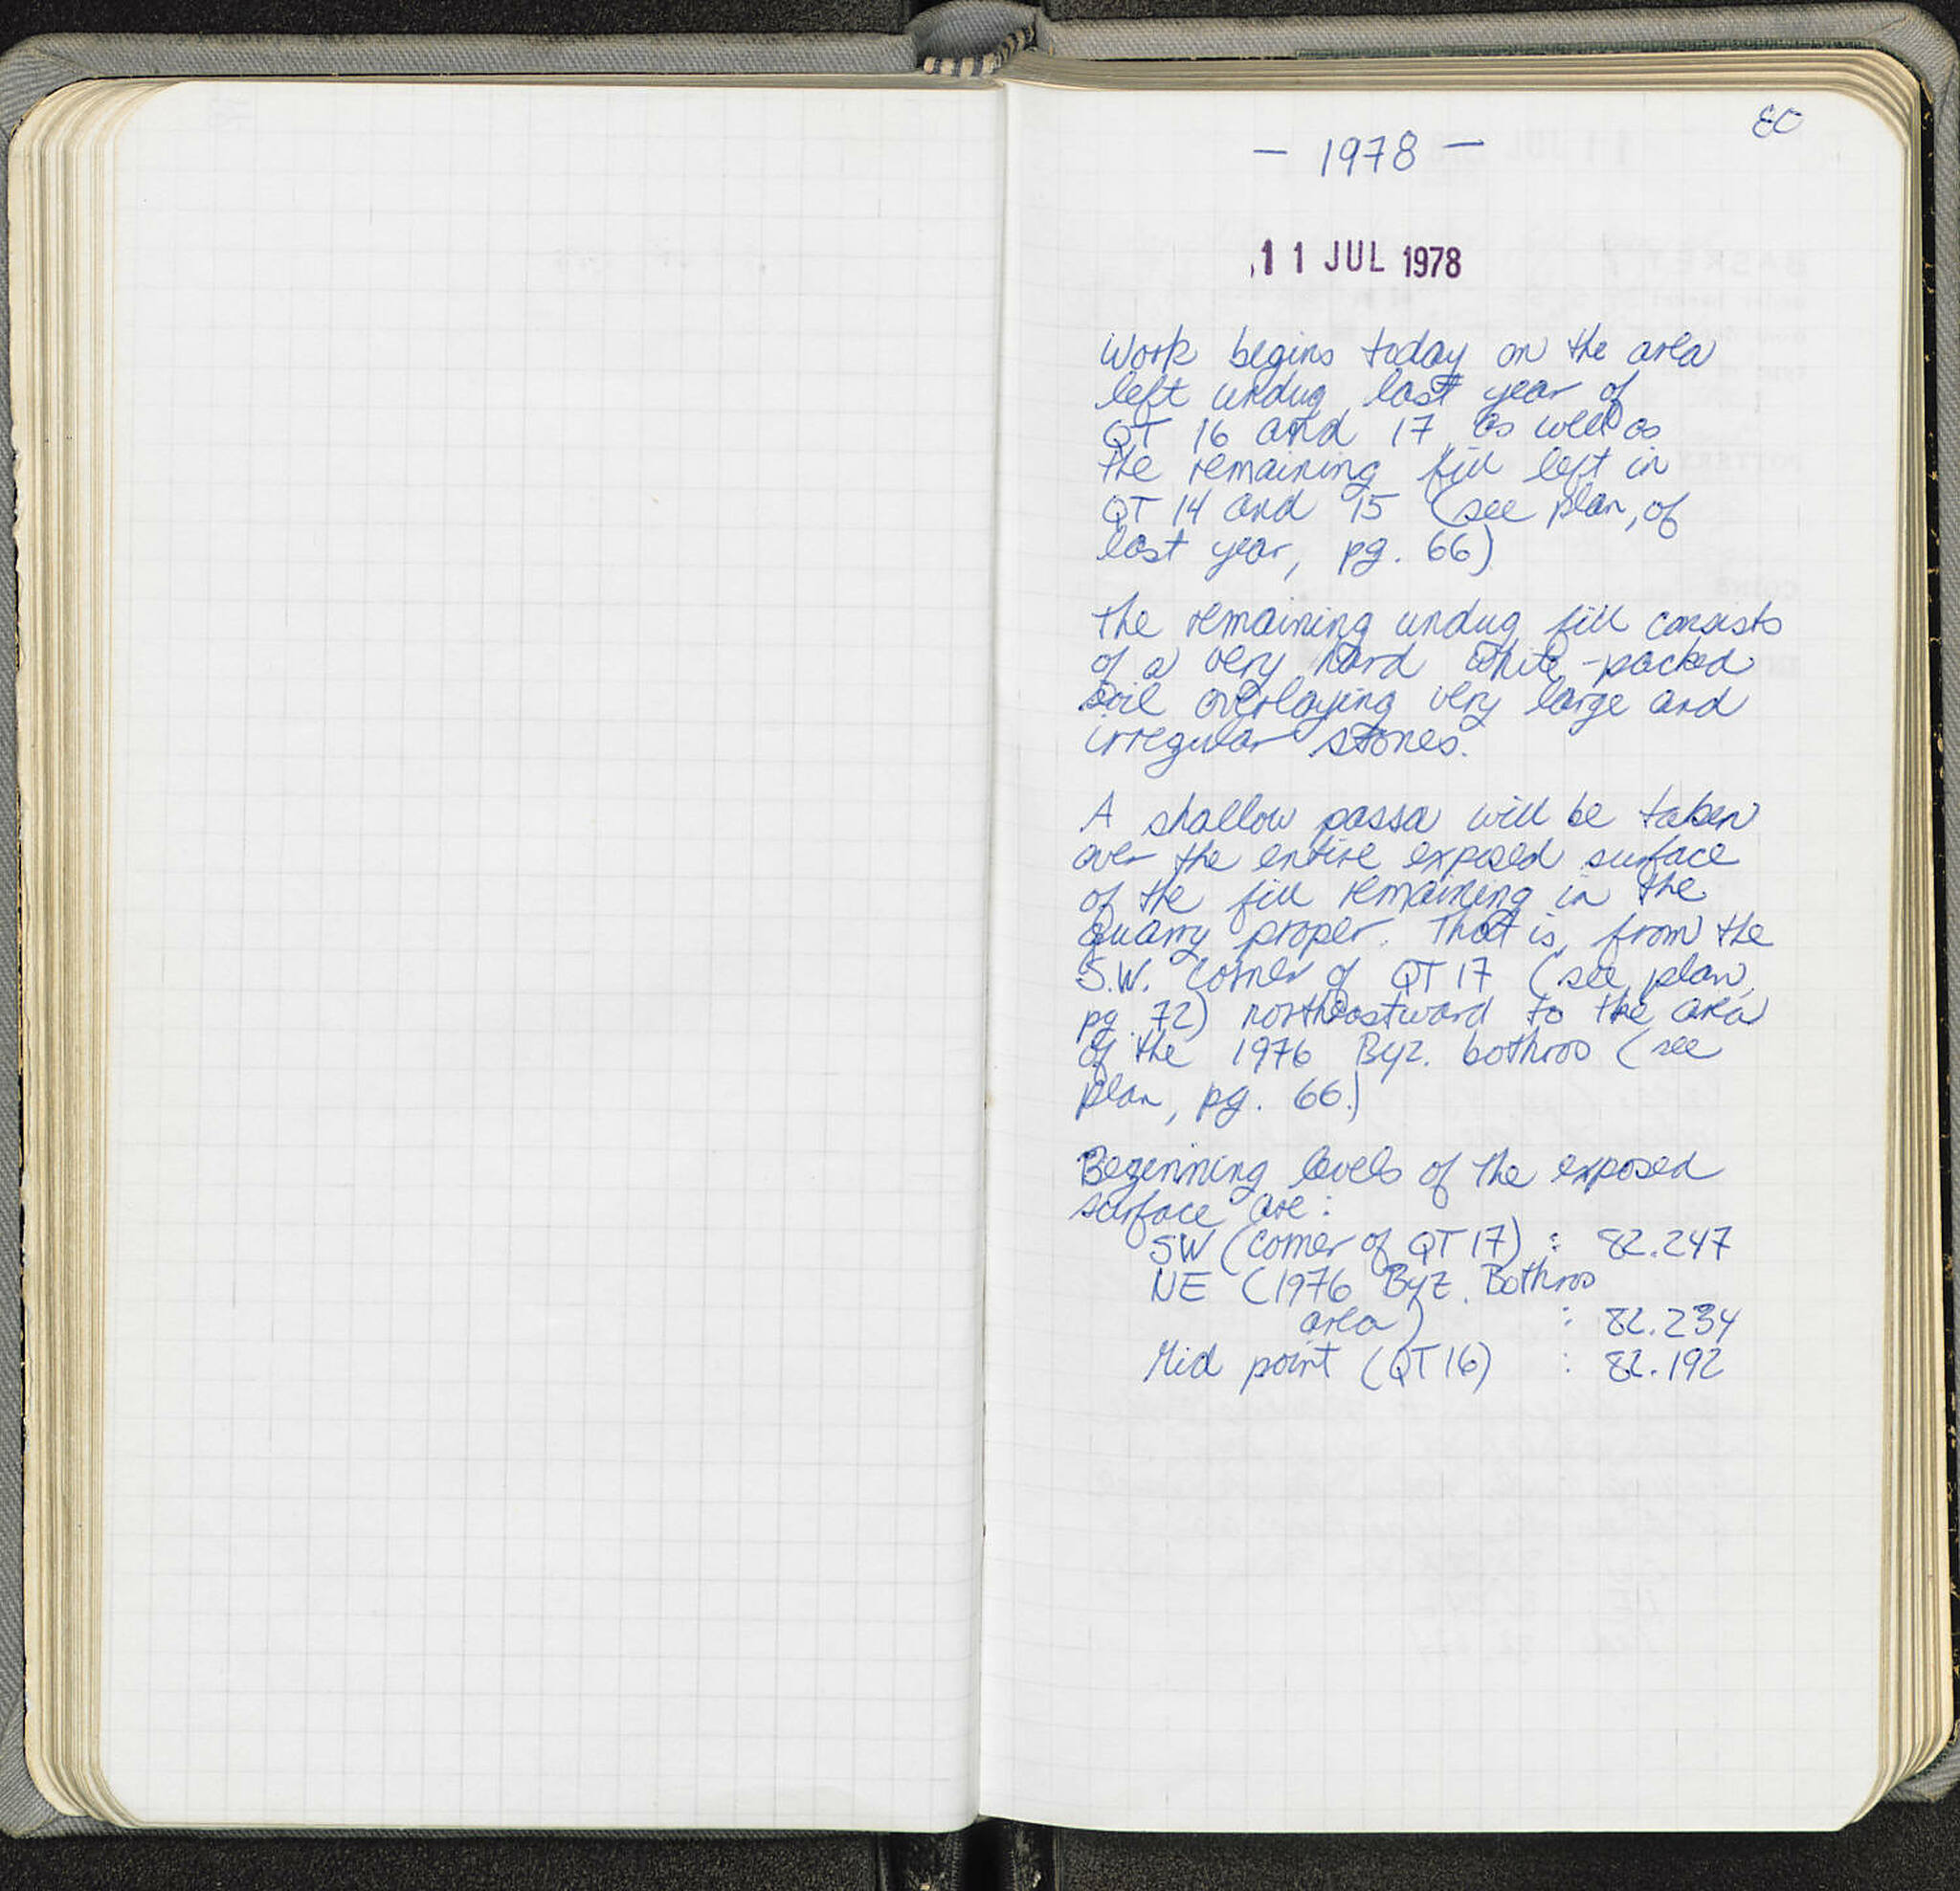 80
— 1978 —
11 JUL 1978
Work begins today on the area
left undug last year of
QT 16 and 17, as well as
the remaining fill left in
QT 14 and 15 (see plan, of
last year, pg. 66)
The remaining undug fill consists
of a very hard white-packed
soil overlaying very large and
irregular stones.
A shallow passa will be taken
over the entire exposed surface
of the fill remaining in the
quarry proper. That is, from the
S.W. corner of QT 17 (see plan,
pg. 72) northeastward to the area
of the 1976 Byz. bothros (see
plan, pg. 66.)
Beginning levels of the exposed
surface are:
SW (corner of QT 17) : 82.247
NE (1976 Byz. Bothros
area) : 82.234
Mid point (QT 16) : 82.192